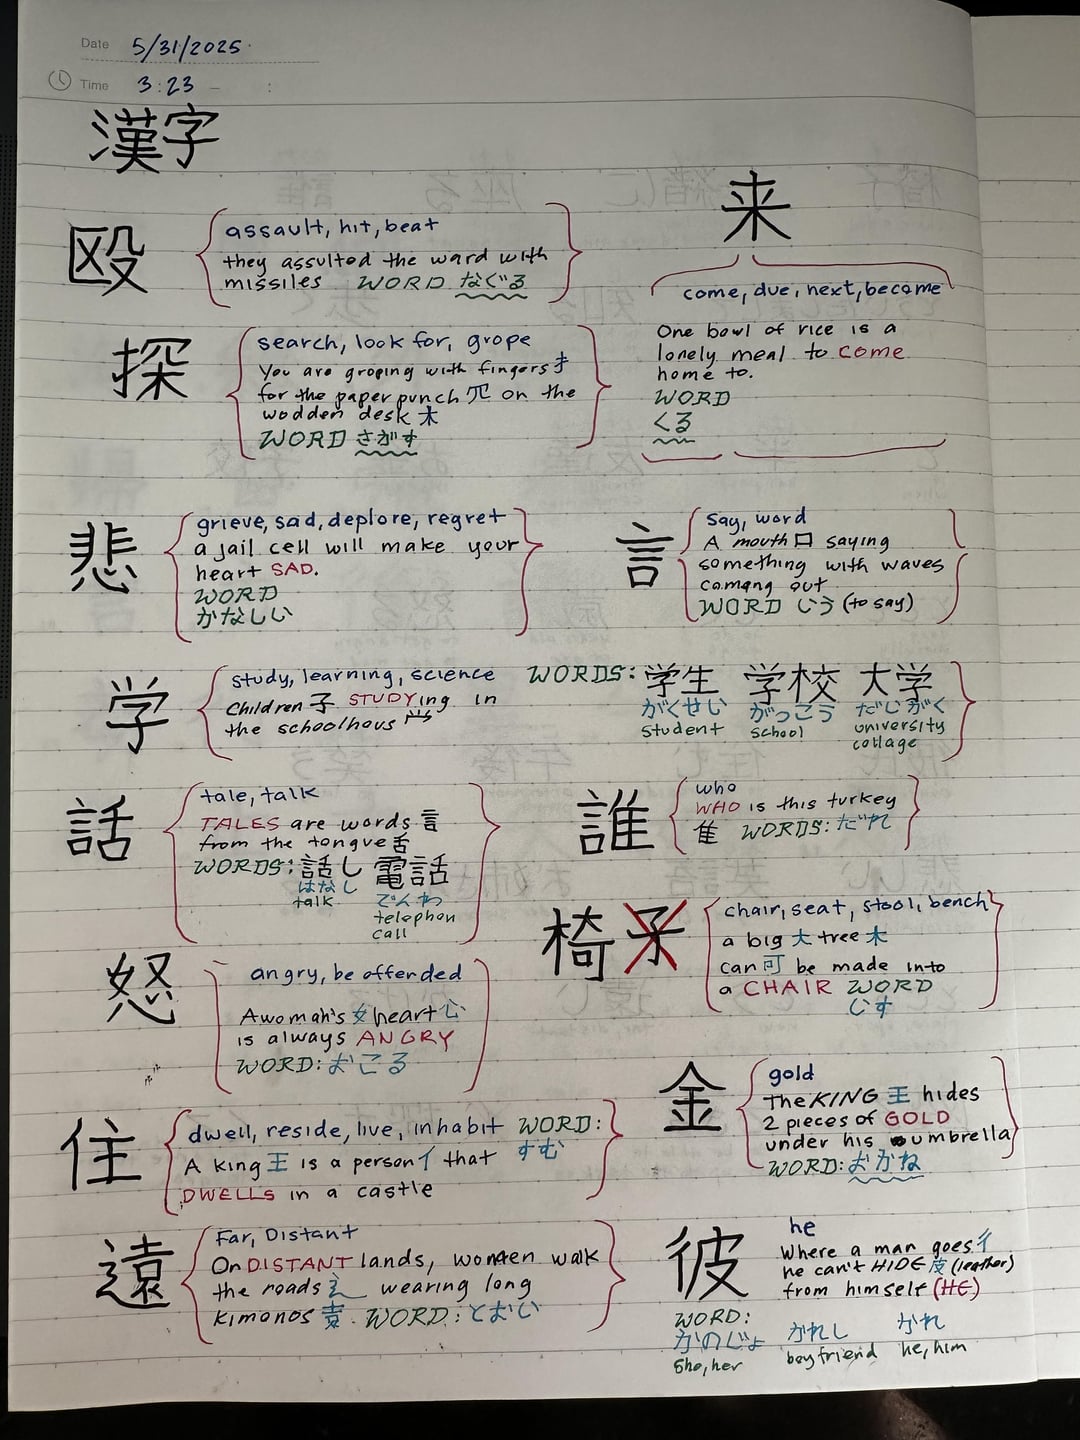 Date 5/31/2025
Time 3:23 - :
漢字
殴
assault, hit, beat
they assulted the ward with
missiles WORD なぐる
来
come, due, next, become
One bowl of rice is a
lonely meal to come
home to.
WORD
くる
探
search, look for, grope
You are groping with fingers 扌
for the paper punch on the
wodden desk 木
WORD さがす
悲
grieve, sad, deplore, regret
a jail cell will make your
heart SAD.
WORD
かなしい
言
say, word
A mouth 口 saying
something with waves
comang out
WORD いう (to say)
学
study, learning, science
Children 子 STUDYing in
the schoolhous
WORDS: 学生 学校 大学
がくせい がっこう だいがく
student school university
collage
話
tale, talk
TALES are words 言
from the tongue 舌
WORDS: 話し 電話
はなし でんわ
talk telephon
call
誰
who
WHO is this turkey
隹 WORDS: だれ
椅子
chair, seat, stool, bench
a big 大 tree 木
can 可 be made into
a CHAIR WORD
いす
怒
angry, be offended
A woman's 女 heart 心
is always ANGRY
WORD: おこる
金
gold
The KING 王 hides
2 pieces of GOLD
under his umbrella
WORD: おかね
住
dwell, reside, live, inhabit WORD:
A king 王 is a person イ that すむ
DWELLS in a castle
遠
Far, Distant
On DISTANT lands, women walk
the roads 辶 wearing long
kimonos 袁. WORD: とおい
彼
he
Where a man goes 彳
he can't HIDE 皮 (leather)
from himself (HE)
WORD:
かのじょ かれし かれ
She, her boyfriend he, him